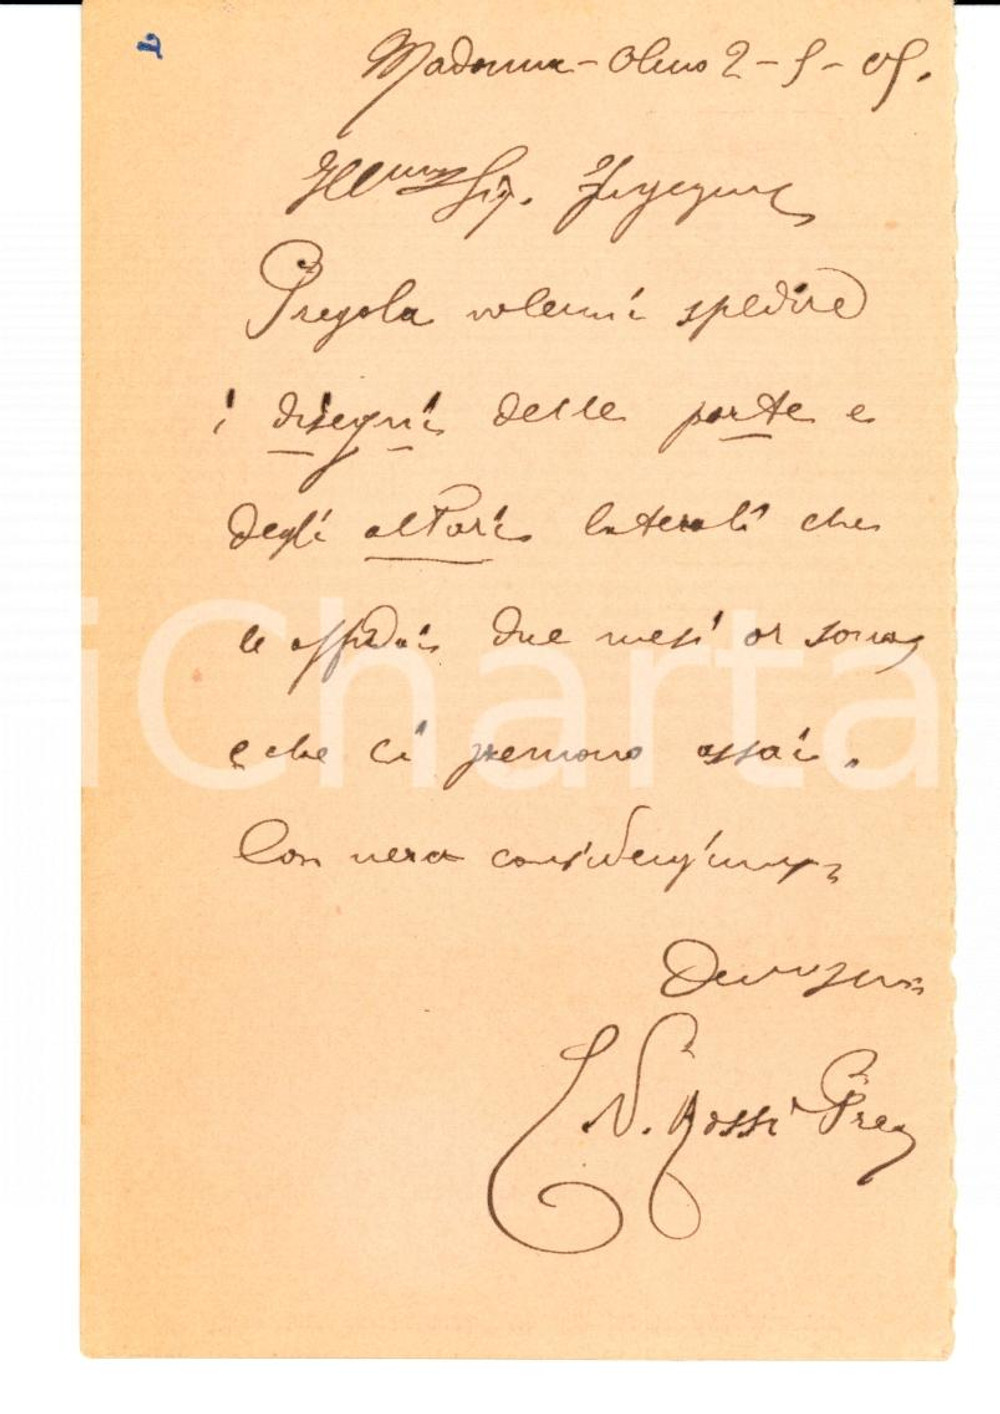 Madonna - Olmo 2 - 5 - 05.
Ill.mo Sig. Ingegnere
Pregola volermi spedire
i disegni delle porte e
degli altari laterali che
le affidai due mesi or sono,
e che ci premono assai.
Con vera considerazione
Devmo
N. Rossi Prev
iCharta